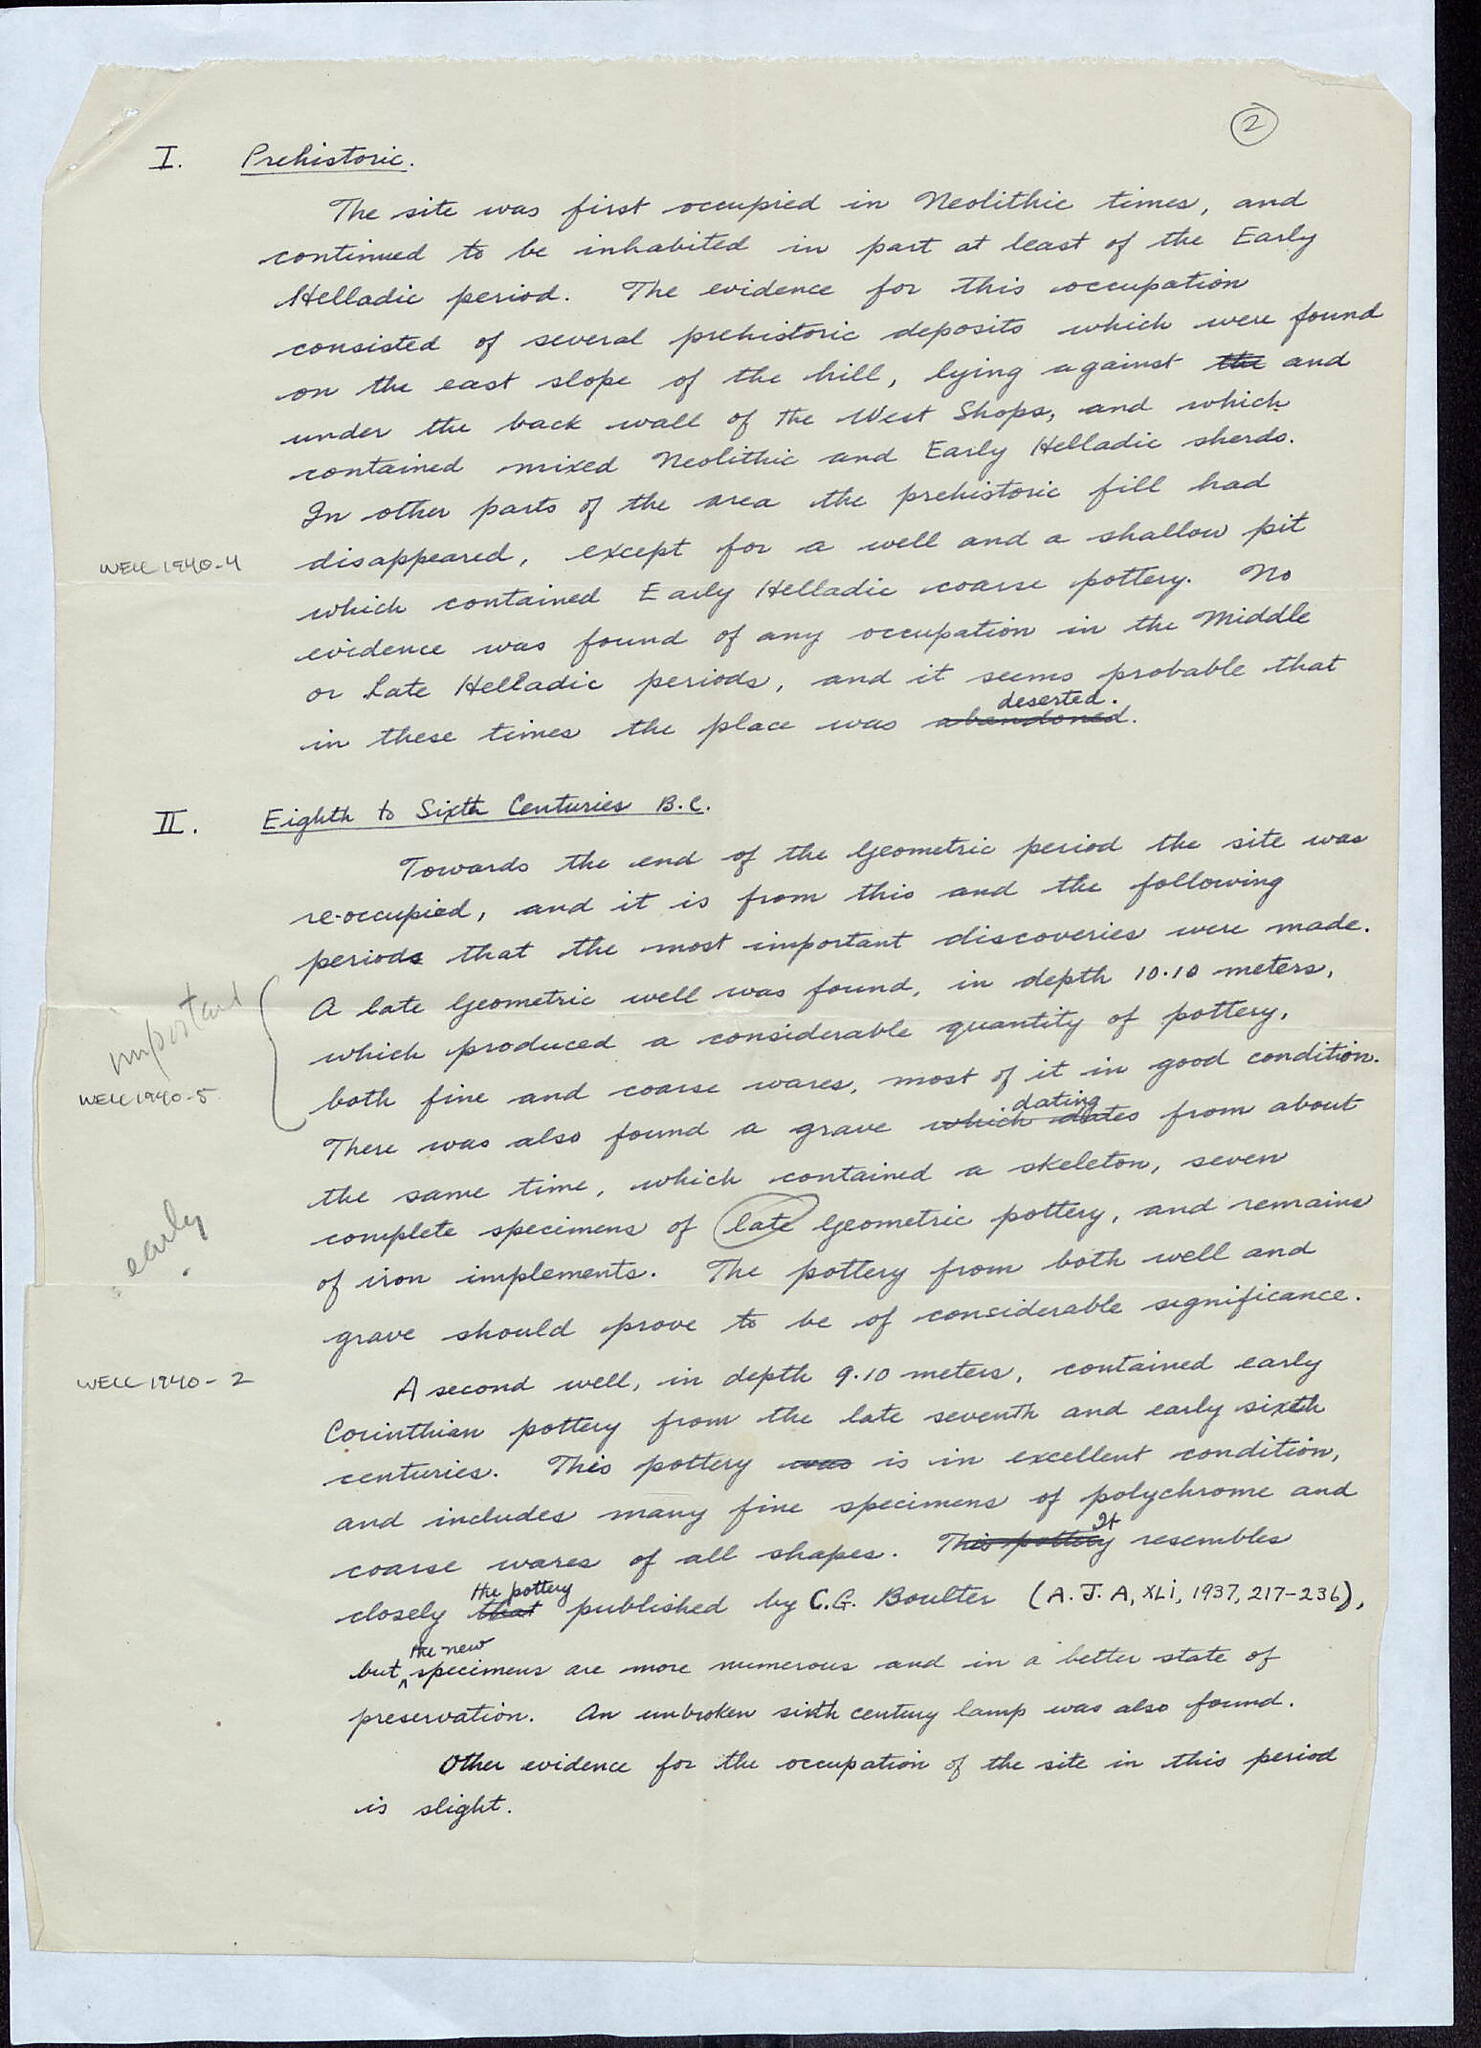 2
I. Prehistoric.
The site was first occupied in Neolithic times, and
continued to be inhabited in part at least of the Early
Helladic period. The evidence for this occupation
consisted of several prehistoric deposits which were found
on the east slope of the hill, lying against the and
under the back wall of the West Shops, and which
contained mixed Neolithic and Early Helladic sherds.
In other parts of the area the prehistoric fill had
disappeared, except for a well and a shallow pit
WELL 1940-4
which contained Early Helladic coarse pottery. No
evidence was found of any occupation in the Middle
or Late Helladic periods, and it seems probable that
deserted.
in these times the place was abandoned.
II. Eighth to Sixth Centuries B.C.
Towards the end of the Geometric period the site was
re-occupied, and it is from this and the following
periods that the most important discoveries were made.
A late Geometric well was found, in depth 10.10 meters,
important
which produced a considerable quantity of pottery,
WELL 1940-5
both fine and coarse wares, most of it in good condition.
dating
There was also found a grave which dates from about
the same time, which contained a skeleton, seven
early
complete specimens of late Geometric pottery, and remains
of iron implements. The pottery from both well and
grave should prove to be of considerable significance.
WELL 1940-2
A second well, in depth 9.10 meters, contained early
Corinthian pottery from the late seventh and early sixth
centuries. This pottery was is in excellent condition,
and includes many fine specimens of polychrome and
It
coarse wares of all shapes. This pottery resembles
the pottery
closely that published by C.G. Boulter (A.J.A, XLI, 1937, 217-236),
the new
but specimens are more numerous and in a better state of
preservation. An unbroken sixth century lamp was also found.
Other evidence for the occupation of the site in this period
is slight.